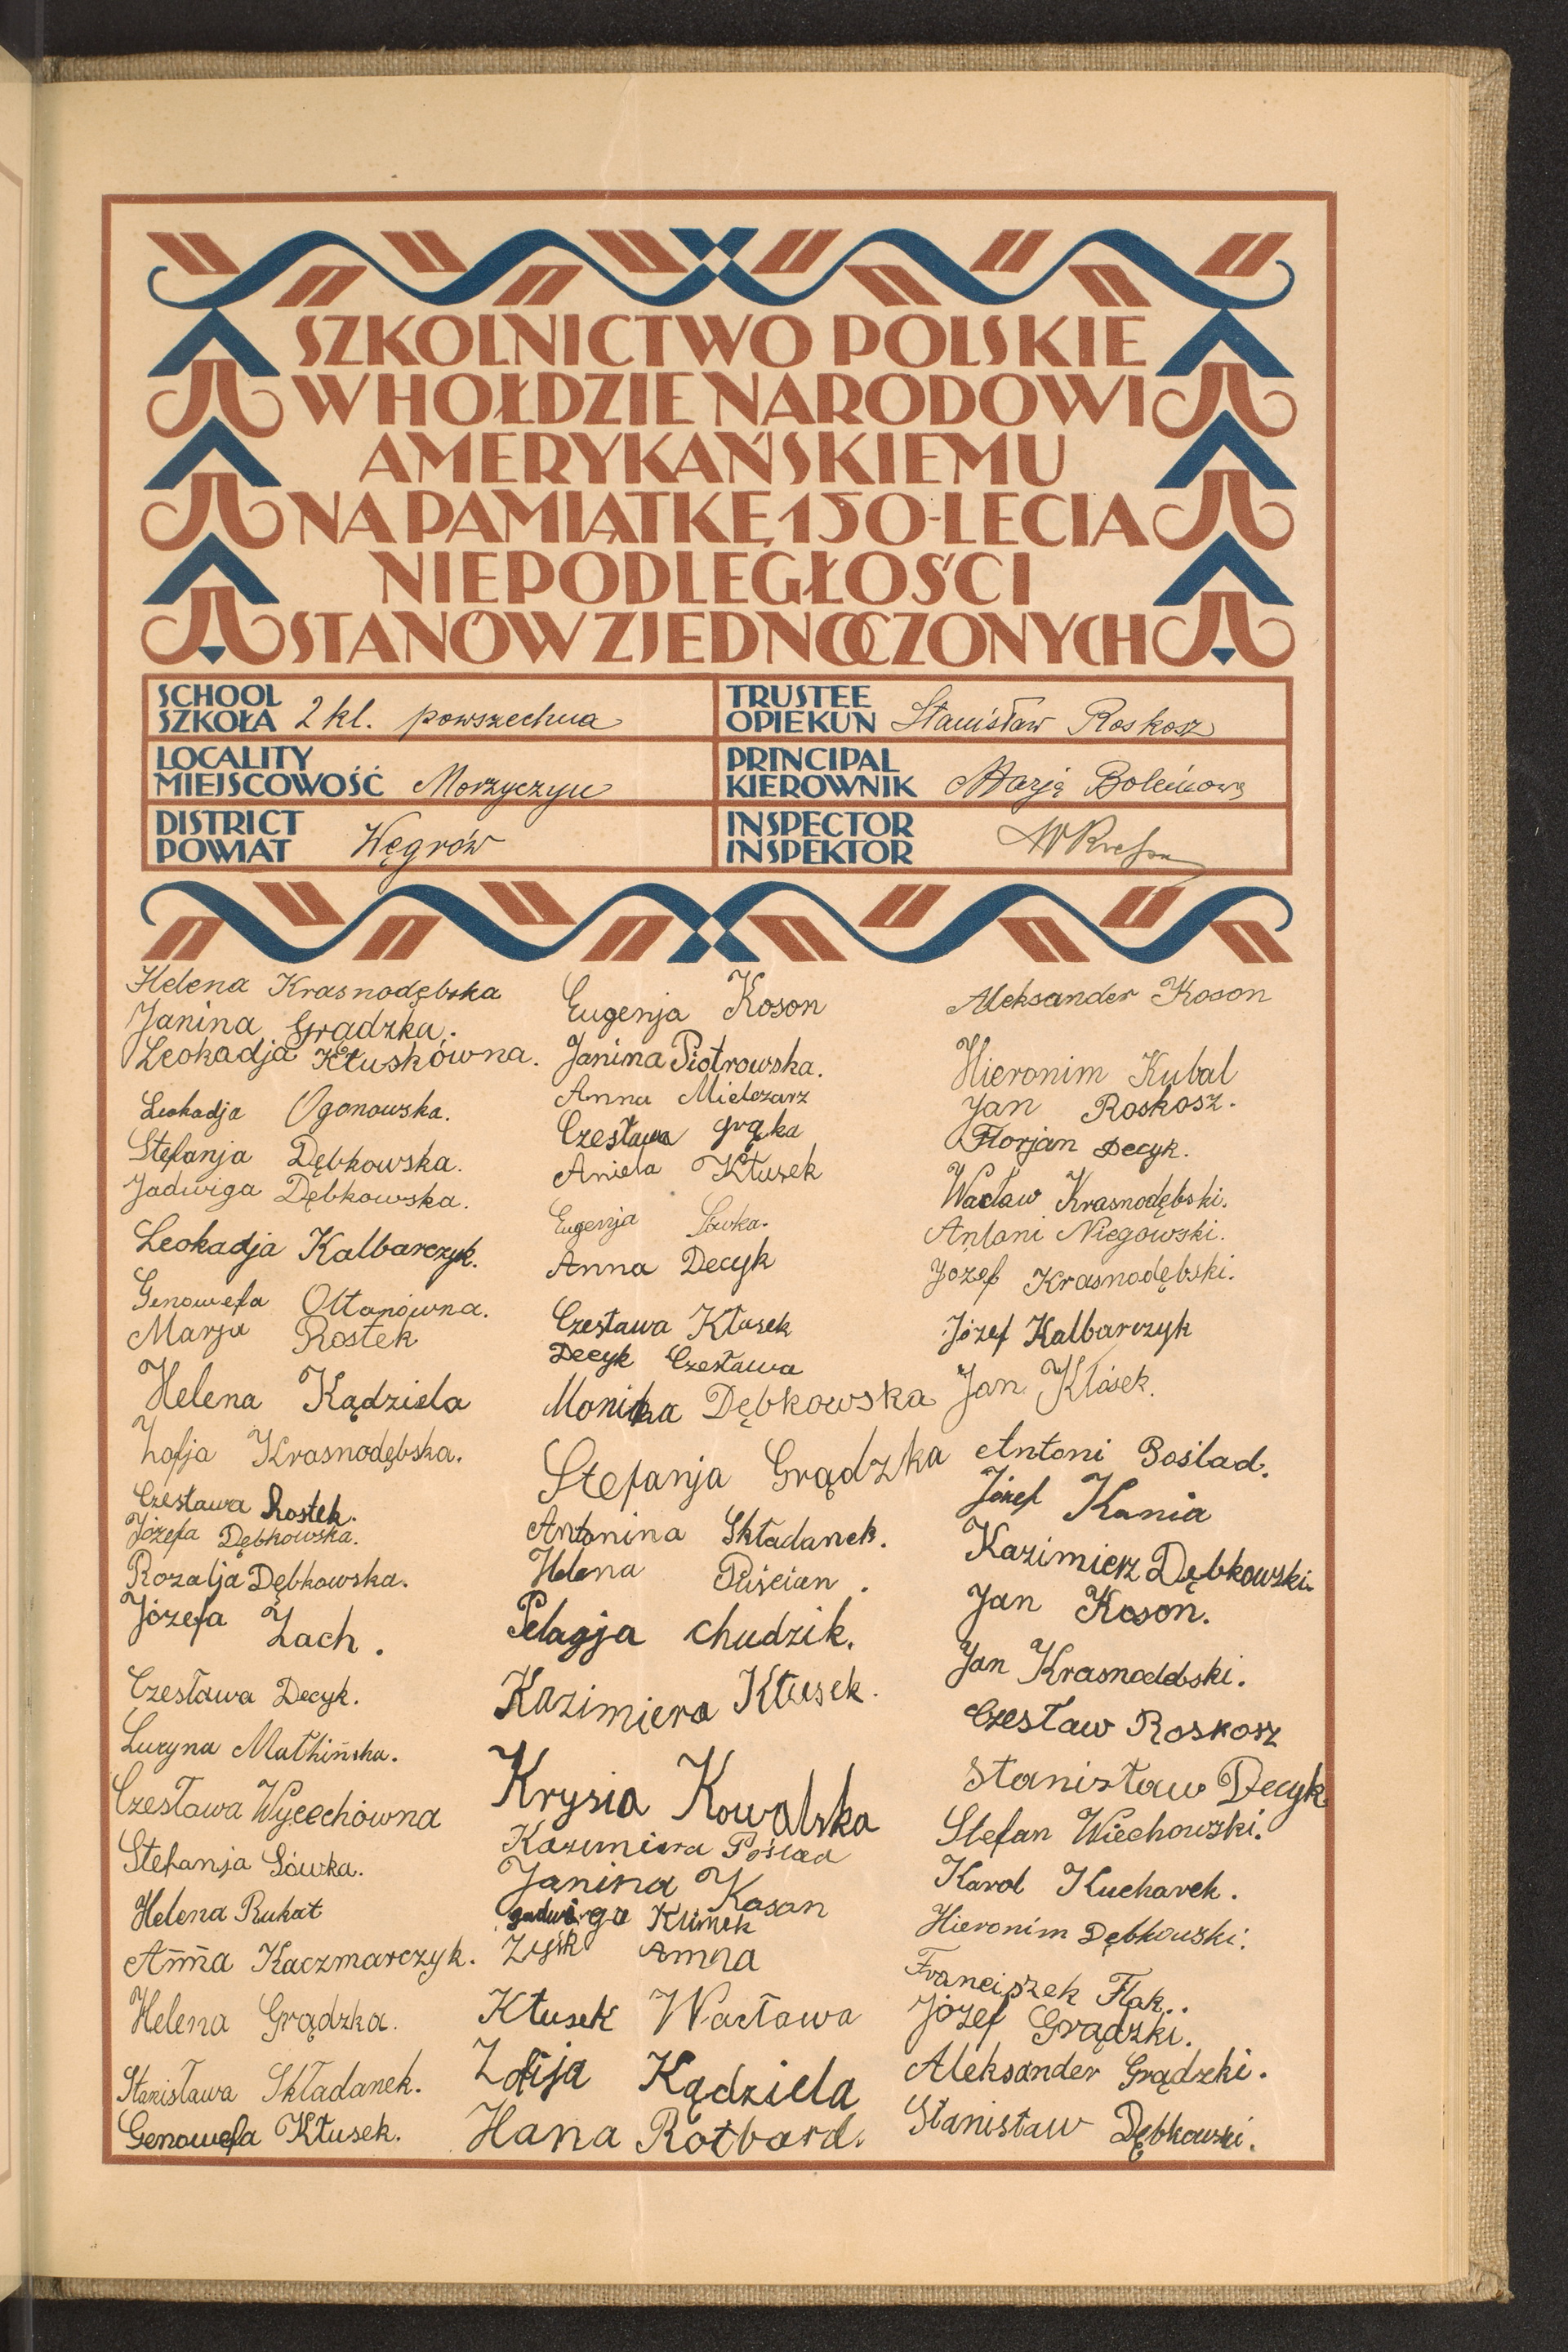 SZKOLNICTWO POLSKIE
W HOŁDZIE NARODOWI
AMERYKAŃSKIEMU
NA PAMIĄTKĘ 150-LECIA
NIEPODLEGŁOŚCI
STANÓW ZJEDNOCZONYCH
SCHOOL
SZKOŁA 2 kl. powszechna
TRUSTEE
OPIEKUN Stanisław Roskosz
LOCALITY
MIEJSCOWOŚĆ Morzyczyn
PRINCIPAL
KIEROWNIK Marja
DISTRICT
POWIAT Węgrów
INSPECTOR
INSPEKTOR
Helena Krasnodębska
Janina Grądzka.
Leokadja Kłuskówna.
Leokadja Ogonowska.
Stefanja Dębkowska.
Jadwiga Dębkowska.
Leokadja Kalbarczyk.
Genowefa Ołtanówna.
Marja Rostek
Helena Kądziela
Zofja Krasnodębska.
Czesława Rostek.
Józefa Dębkowska.
Rozalja Dębkowska.
Józefa Zach.
Czesława Decyk.
Lucyna
Czesława Wycechówna
Stefanja Sówka.
Helena Rukat
Anna Kaczmarczyk.
Helena Grądzka.
Stanisława Składanek.
Genowefa Kłusek.
Eugenja Koson
Janina Piotrowska.
Anna Mielczarz
Czesława Grąka
Aniela Kłusek
Eugenja Sówka.
Anna Decyk
Czesława Kłusek
Decyk Czesława
Monika Dębkowska
Stefanja Grądzka
Antonina Składanek.
Helena Puścian.
Pelagja chudzik.
Kazimiera Kłusek.
Krysia Kowalska
Kazimiera Poślad
Janina Kasan
Jadwiga Klimek
Zyśk Anna
Kłusek Wacława
Zofija Kądziela
Hana Rotbard.
Aleksander Koson
Hieronim Kubal
Jan Roskosz.
Florjan Decyk.
Wacław Krasnodębski.
Antoni Niegowski.
Józef Krasnodębski.
Józef Kalbarczyk
Jan Kłósek.
Antoni Poślad.
Józef Kania
Kazimierz Dębkowski.
Jan Koson.
Jan Krasnoddbski.
Czesław Roskosz
Stanisław Decyk
Stefan Wiechowski.
Karol Kucharek.
Hieronim Dębkowski.
Franciszek Flak..
Józef Grądzki.
Aleksander Grądzki.
Stanisław Dębkowski.